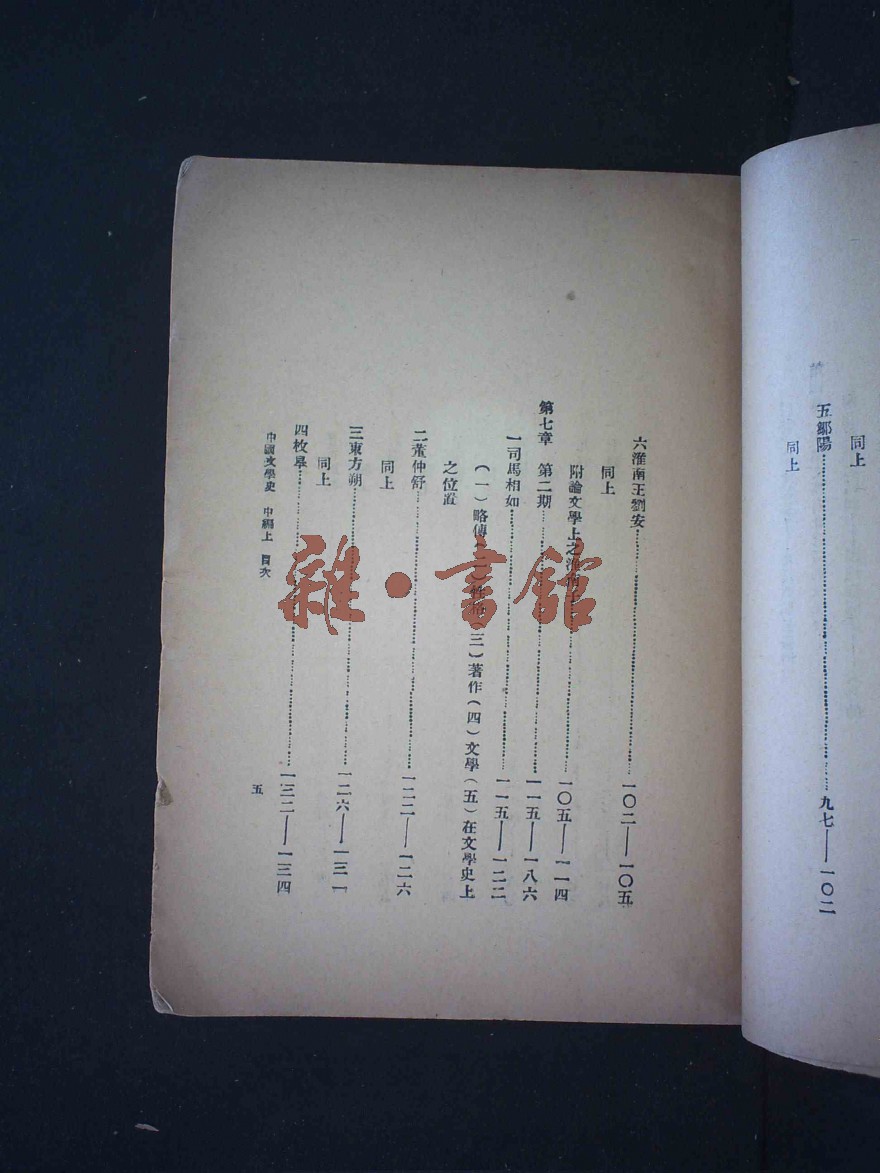 同上
五鄒陽……九七——一〇二
同上
六淮南王劉安……一〇二——一〇五
同上
附論文學上之淮南王……一〇五——一一四
第七章　第二期……一一五——一八六
一司馬相如……一一五——一二二
(一)略傳(二)性格(三)著作(四)文學(五)在文學史上
之位置
二董仲舒……一二二——一二六
同上
三東方朔……一二六——一三一
同上
四枚皋……一三二——一三四
中國文學史　中編上　目次
五
雜·書館